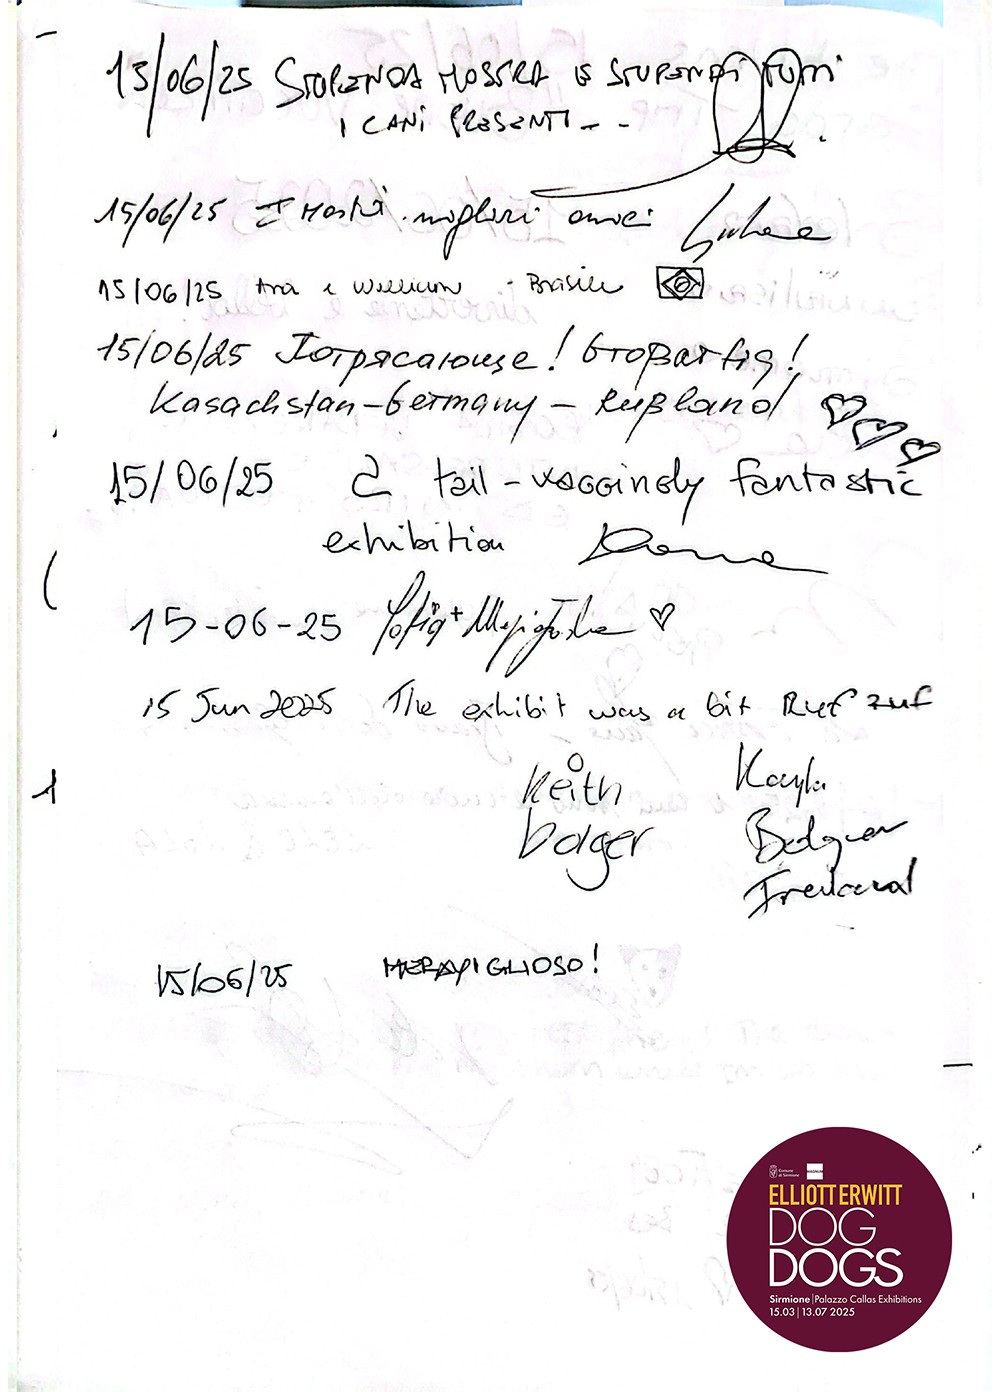 15/06/25 STUPENDA MOSTRA E STUPENDI TUTTI
I CANI PRESENTI - -
15/06/25 I nostri migliori amici
15/06/25 Ana e William - Brasile
15/06/25 Потрясающе! Großartig!
Kasachstan-Germany - Rußland
15/06/25 a tail-waggingly fantastic
exhibition
15-06-25 Sofia +
15 Jun 2025 The exhibit was a bit Ruf Ruf
Keith Kayla
Bolger Bolger
15/06/25 MERAVIGLIOSO!
Comune
di Sirmione
MAGNUM
ELLIOTT ERWITT
DOG
DOGS
Sirmione | Palazzo Callas Exhibitions
15.03 | 13.07 2025